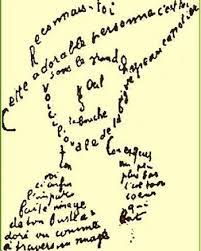 Reconnais-toi
Cette adorable personne c'est toi
Sous le grand chapeau canotier
Oeil
la bouche
Voici l'ovale de ta figure
Ton cou exquis
voi
ci enfin
l'impar
faite image
de ton buste a
doré vu comme
à travers un nuage
un peu
plus bas
c'est ton
coeur
qui
bat